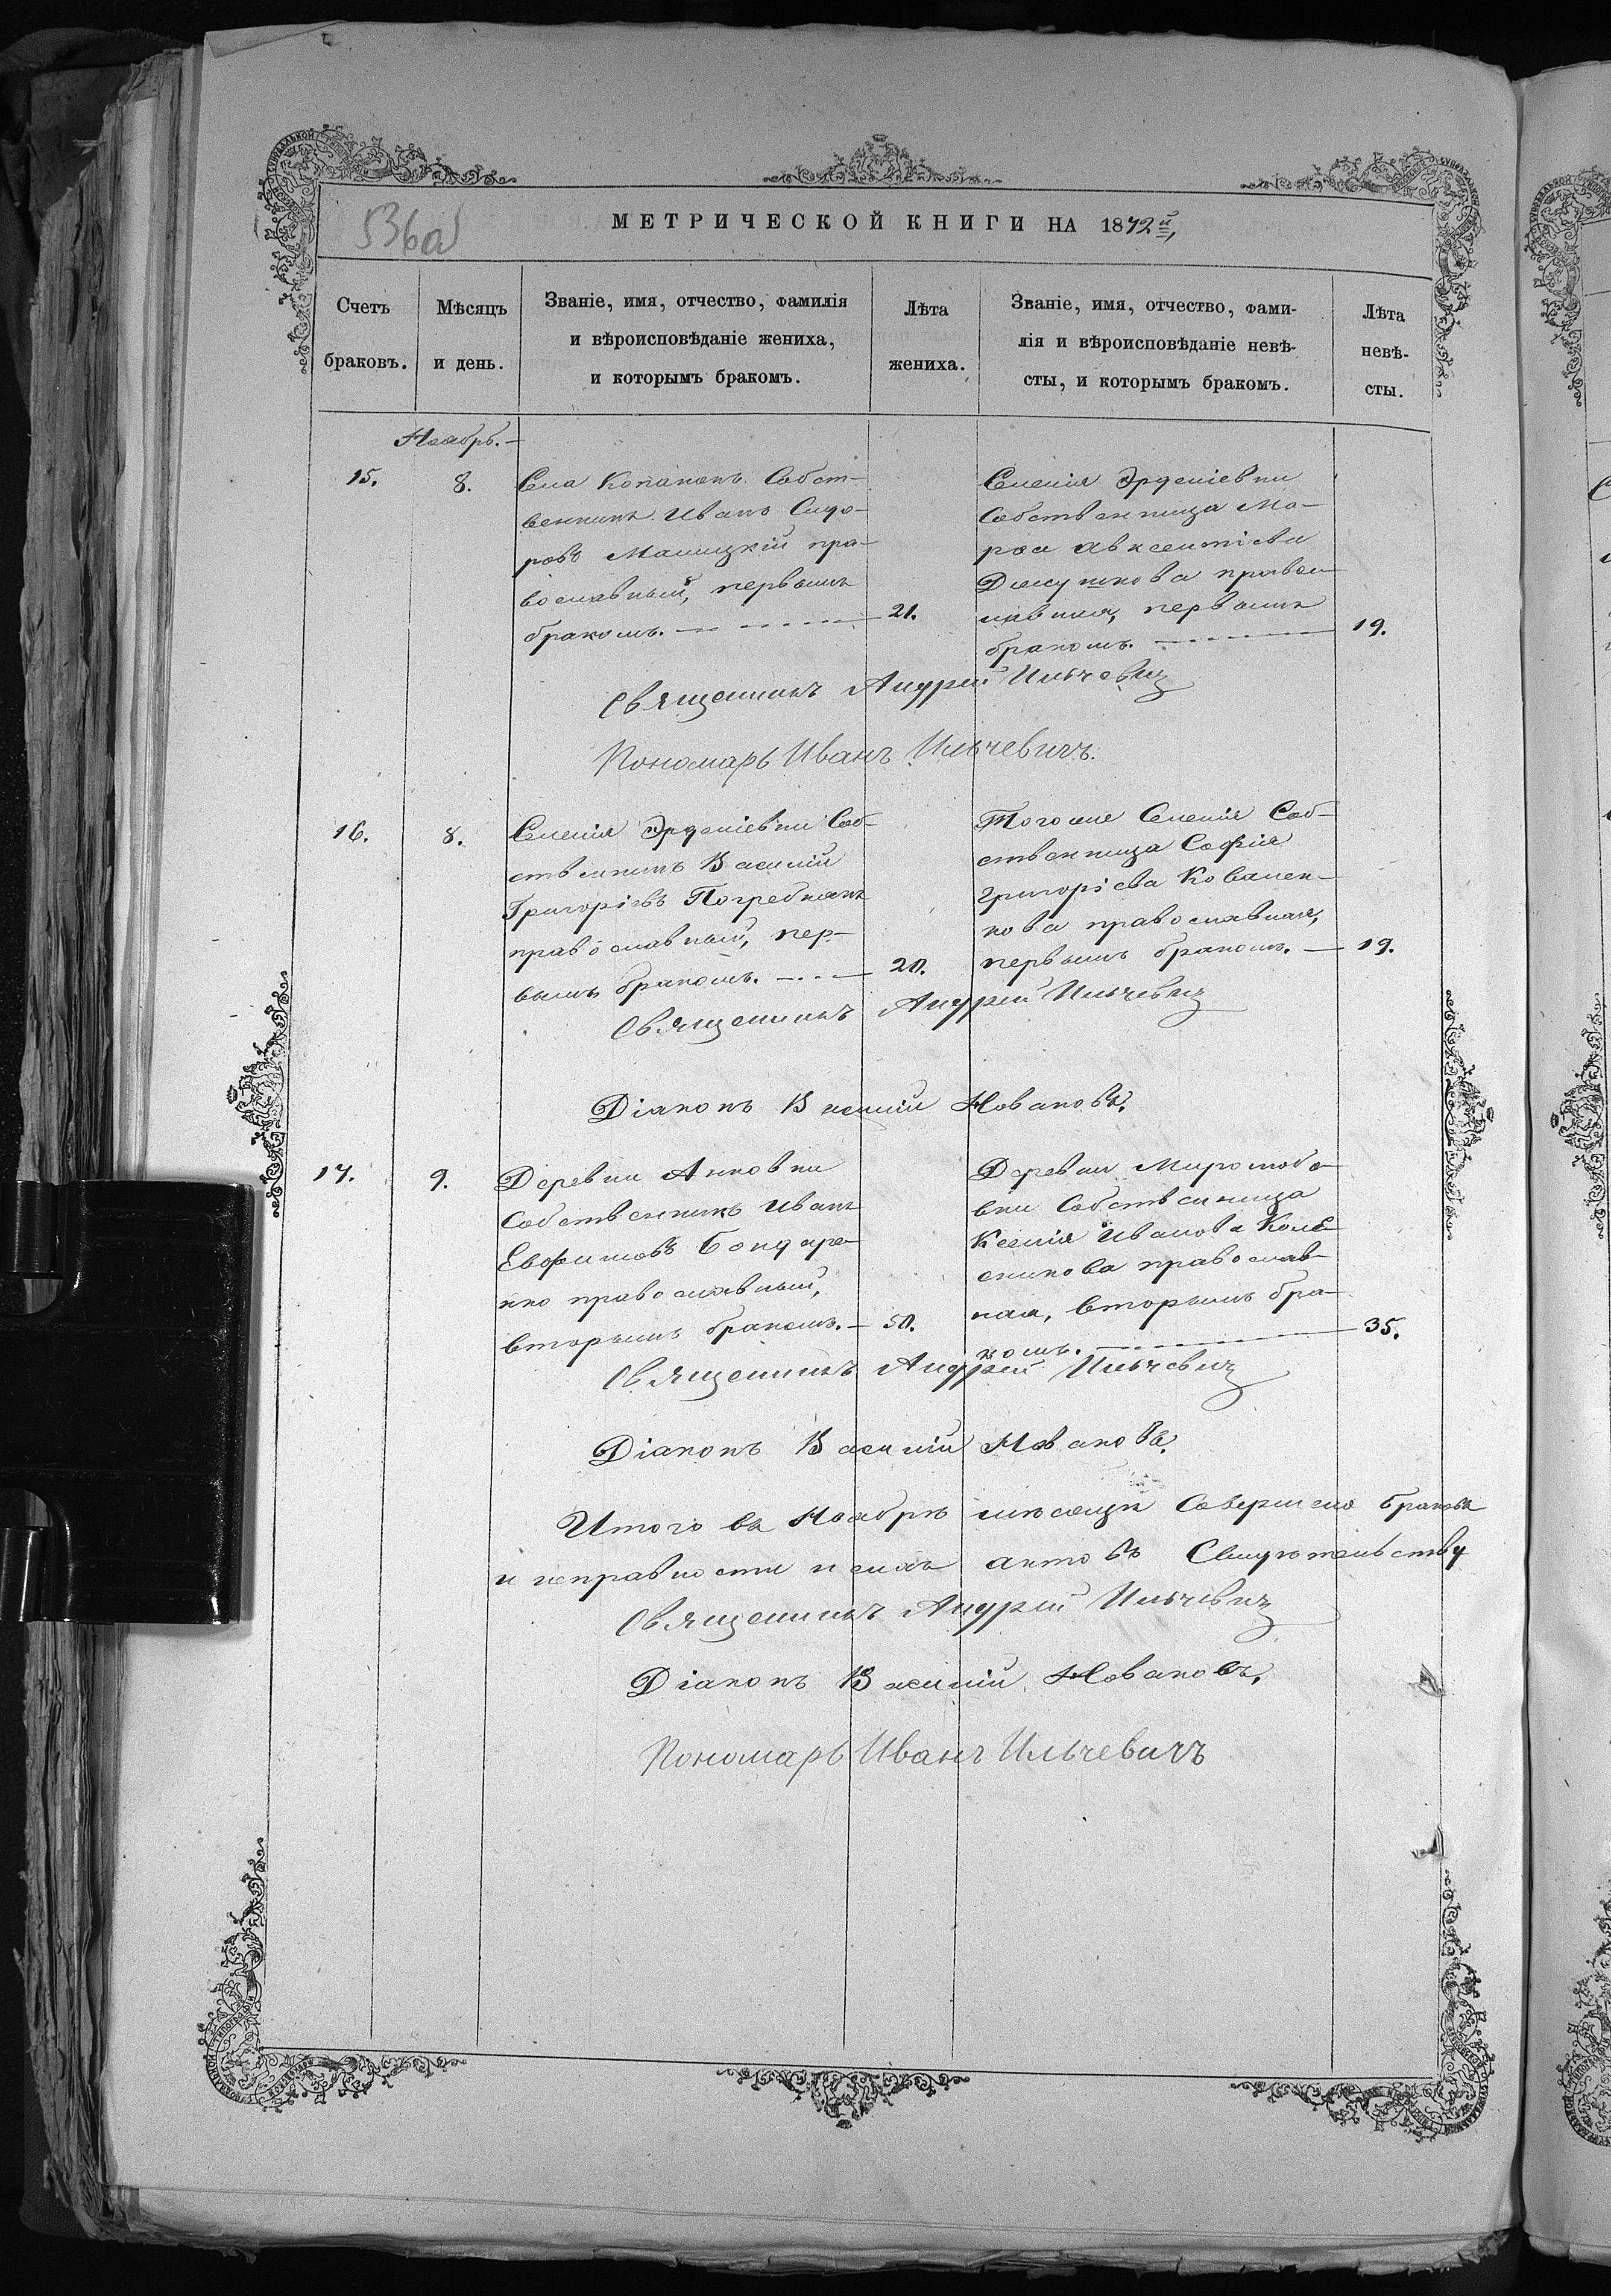 536а
МЕТРИЧЕСКОЙ КНИГИ НА 1872й,
Счетъ браковъ.
Мѣсяцъ и день.
Званіе, имя, отчество, фамилія
и вѣроисповѣданіе жениха,
и которымъ бракомъ.
Лѣта жениха.
Званіе, имя, отчество, фами-
лія и вѣроисповѣданіе невѣ-
сты, и которымъ бракомъ.
Лѣта невѣ-
сты.
Ноабрь.
15.
8.
Села Копанокъ Собст-
венникъ Иванъ Сидо-
ровъ Малицкій пра-
вославный, первымъ
бракомъ.
21.
Селенія Эрделіевки
Собственница Ма-
рѳа Авксентіева
православ-
ная, первымъ
бракомъ.
19.
Священникъ Андрей Ильчевич
Пономарь Иванъ Ильчевичъ.
16.
8.
Селенія Эрделіевки Соб-
ственникъ Василій
Григоріевъ Погребнякъ
православный, пер-
вымъ бракомъ.
20.
Тогоже Селенія Соб-
ственница Софія
Григоріева Ковален-
кова православная,
первымъ бракомъ.
19.
Священникъ Андрей Ильчевич
Діаконъ Василій Новаковъ.
17.
9.
Деревни Анновки
Собственникъ Иванъ
Евфимовъ Бондаре-
нко православный,
вторымъ бракомъ.
50.
Деревни Миролюбо-
вки Собственница
Ксенія ИвановаКоле-
сникова православ-
ная, вторымъ бра-
комъ.
35.
Священникъ Андрей Ильчевич
Діаконъ Василій Новаковъ.
Итого въ Ноабрѣ мѣсяцѣ Совершено браковъ
и исправности актовъ Свидѣтельству
Священникъ Андрей Ильчевич
Діаконъ Василій Новаковъ.
Пономарь Иванъ Ильчевичъ